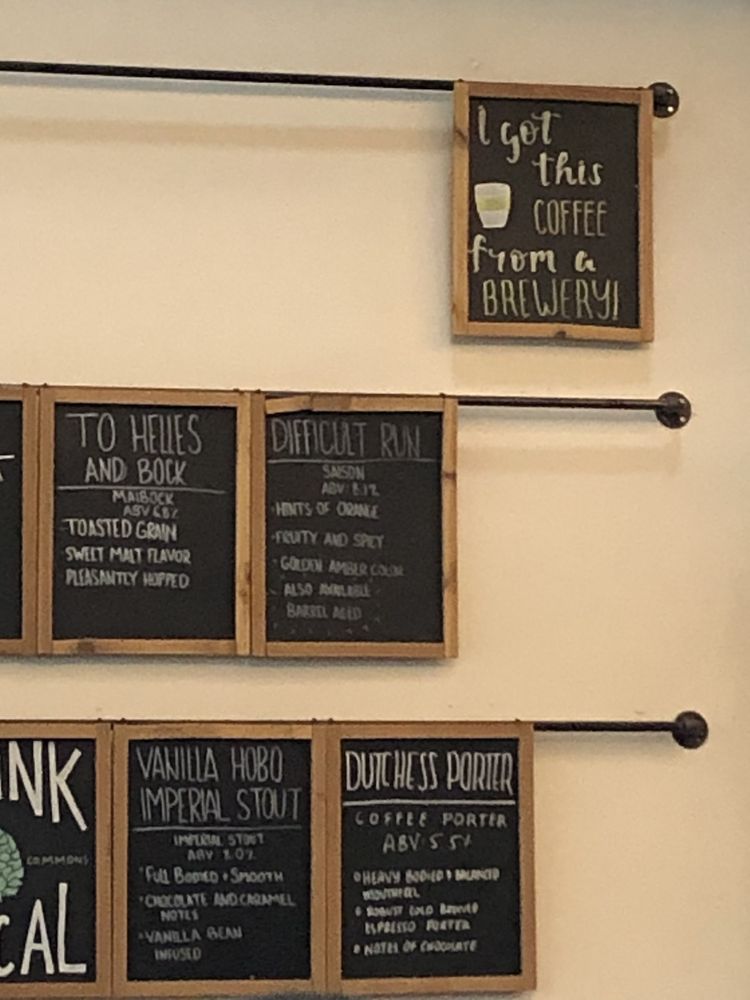 I got
this
COFFEE
from a
BREWERY!
TO HELLES
AND BOCK
MAIBOCK
ABV 6.8%
·TOASTED GRAIN
·SWEET MALT FLAVOR
·PLEASANTLY HOPPED
DIFFICULT RUN
SAISON
ABV
·HINTS OF ORANGE
·FRUITY AND SPICY
·GOLDEN AMBER COLOR
·ALSO AVAILABLE
BARREL AGED
INK
COMMONS
CAL
VANILLA HOBO
IMPERIAL STOUT
IMPERIAL STOUT
ABV 8.0%
·FULL BODIED + SMOOTH
·CHOCOLATE AND CARAMEL
NOTES
·VANILLA BEAN
INFUSED
DUTCHESS PORTER
COFFEE PORTER
ABV 5.5%
HEAVY BODIED & BALANCED
MOUTHFEEL
ROBUST COLD BREWED
ESPRESSO PORTER
NOTES OF CHOCOLATE